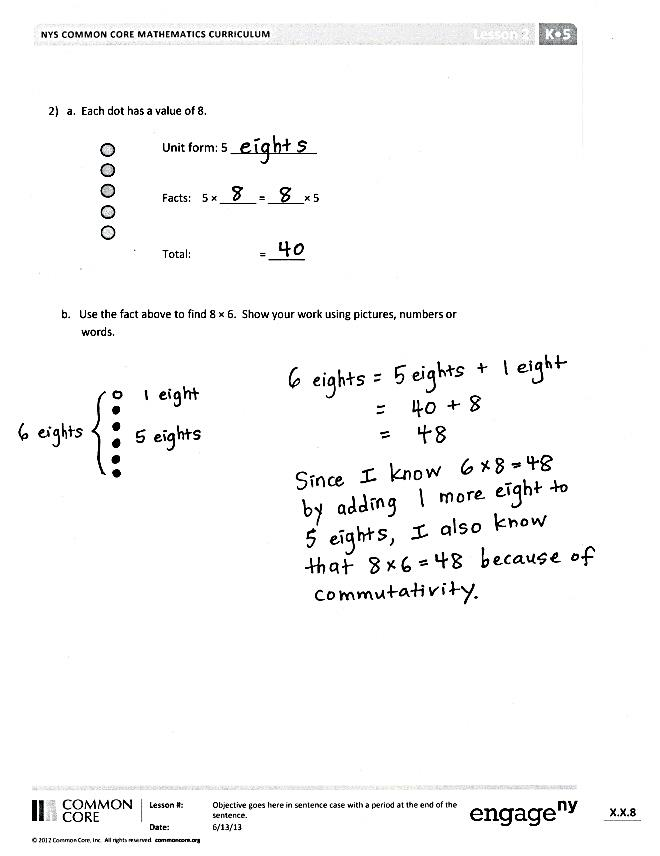 NYS COMMON CORE MATHEMATICS CURRICULUM Lesson 2 K•5
2) a. Each dot has a value of 8.
Unit form: 5 eights
Facts: 5 × 8 = 8 × 5
Total: = 40
b. Use the fact above to find 8 × 6. Show your work using pictures, numbers or
words.
6 eights = 5 eights + 1 eight
= 40 + 8
= 48
1 eight
6 eights
5 eights
Since I know 6 × 8 = 48
by adding 1 more eight to
5 eights, I also know
that 8 × 6 = 48 because of
commutativity.
COMMON
CORE
Lesson #:
Date:
Objective goes here in sentence case with a period at the end of the
sentence.
6/13/13
engage ny
X.X.8
© 2012 Common Core, Inc. All rights reserved. commoncore.org